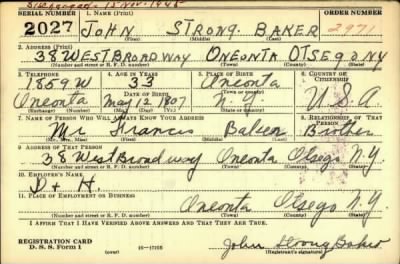 Discharged 15 Nov. 1945
SERIAL NUMBER 1. NAME (Print) ORDER NUMBER
2027 JOHN STRONG BAKER 2971
(First) (Middle) (Last)
2. ADDRESS (Print)
38 WEST BROADWAY ONEONTA OTSEGO NY
(Number and street or R. F. D. number) (Town) (County) (State)
3. TELEPHONE 4. AGE IN YEARS 5. PLACE OF BIRTH 6. COUNTRY OF CITIZENSHIP
1859.W 33 Oneonta
DATE OF BIRTH (Town or county)
Oneonta May 12 1907 N.Y. U.S.A.
(Exchange) (Number) (Mo.) (Day) (Yr.) (State or country)
7. NAME OF PERSON WHO WILL ALWAYS KNOW YOUR ADDRESS 8. RELATIONSHIP OF THAT PERSON
Mr Francis Baker Brother
(Mr., Mrs., Miss) (First) (Middle) (Last)
9. ADDRESS OF THAT PERSON
38 West Broadway Oneonta Otsego N.Y.
(Number and street or R. F. D. number) (Town) (County) (State)
10. EMPLOYER'S NAME
D + H.
11. PLACE OF EMPLOYMENT OR BUSINESS
Oneonta Otsego N.Y.
(Number and street or R. F. D. number) (Town) (County) (State)
I AFFIRM THAT I HAVE VERIFIED ABOVE ANSWERS AND THAT THEY ARE TRUE.
REGISTRATION CARD
D. S. S. FORM 1 16—17105 John Strong Baker
(Registrant's signature)